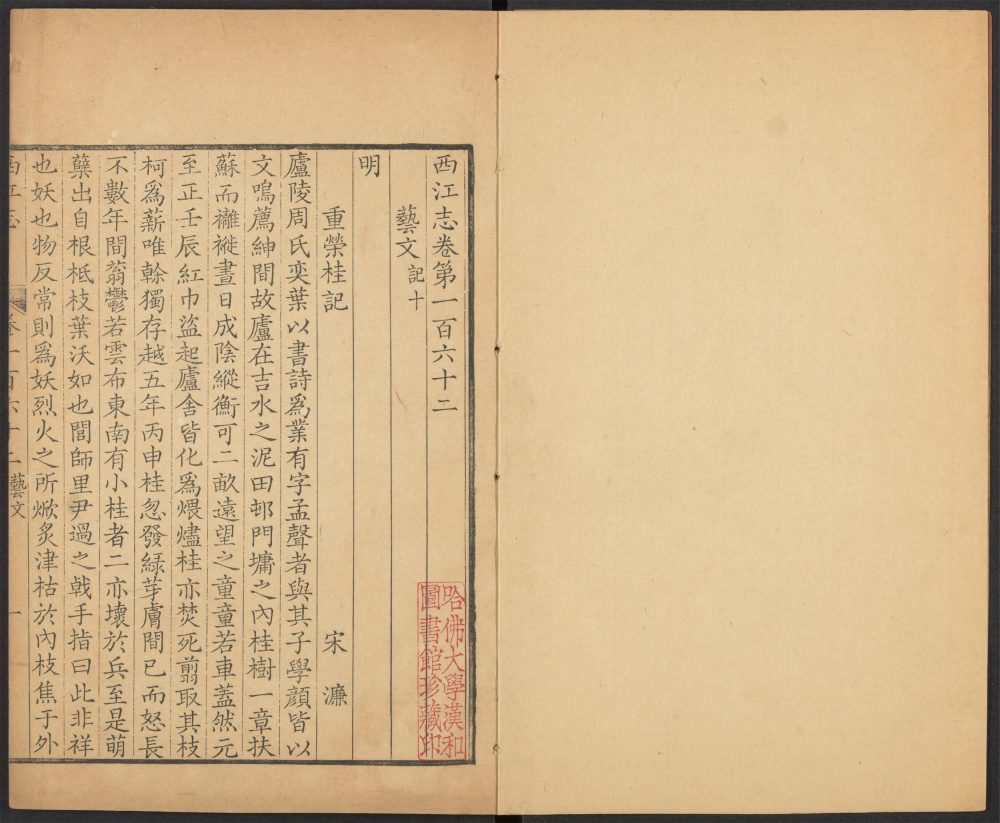 西江志卷第一百六十二
藝文 記十
明
重榮桂記 宋濂
廬陵周氏奕葉以書詩爲業有字孟聲者與其子學顔皆以
文鳴薦紳間故廬在吉水之泥田邨門墉之內桂樹一章扶
蘇而襳褷晝日成陰縱衡可二畝遠望之童童若車蓋然元
至正壬辰紅巾盜起廬舍皆化爲煨燼桂亦焚死翦取其枝
柯爲薪唯榦獨存越五年丙申桂忽發綠芽膚間已而怒長
不數年間蓊鬱若雲布東南有小桂者二亦壞於兵至是萌
蘖出自根柢枝葉沃如也閭師里尹過之戟手指曰此非祥
也妖也物反常則爲妖烈火之所焮炙津枯於內枝焦于外
西江志 卷一百六十二 藝文 一
哈佛大學漢和
圖書館珍藏印